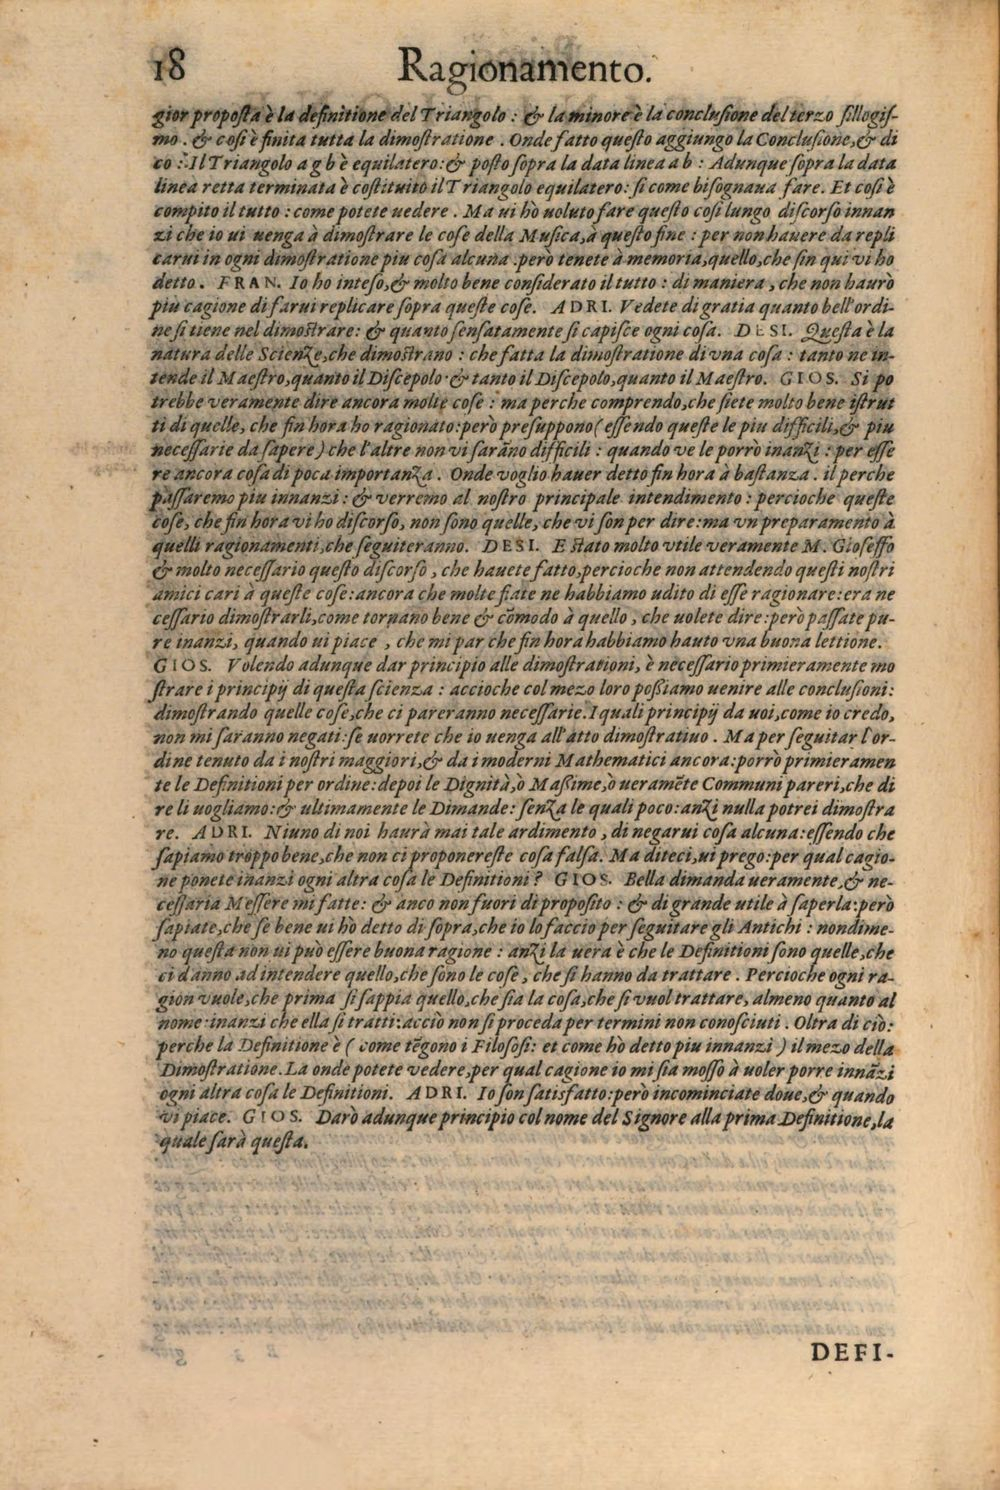 18 Ragionamento.
gior proposta è la definitione del Triangolo : & la minore è la conclusione del terzo sillogis-
mo . & cosi è finita tutta la dimostratione . Onde fatto questo aggiungo la Conclusione, & di
co : Il Triangolo a g b è equilatero: & posto sopra la data linea a b : Adunque sopra la data
linea retta terminata è costituito il Triangolo equilatero: si come bisognaua fare. Et cosi è
compito il tutto : come potete uedere . Ma ui hò uoluto fare questo cosi lungo discorso innan
zi che io ui uenga à dimostrare le cose della Musica, à questo fine : per non hauere da repli
carui in ogni dimostratione piu cosa alcuna . però tenete à memoria, quello, che fin qui vi ho
detto . FRAN. Io ho inteso, & molto bene considerato il tutto : di maniera, che non haurò
più cagione di farui replicare sopra queste cose. ADRI. Vedete di gratia quanto bell'ordi-
ne si tiene nel dimostrare: & quanto sensatamente si capisce ogni cosa. DESI. Questa è la
natura delle Scienze, che dimostrano : che fatta la dimostratione di vna cosa : tanto ne in-
tende il Maestro, quanto il Discepolo · & tanto il Discepolo, quanto il Maestro. GIOS. Si po
trebbe veramente dire ancora molte cose : ma perche comprendo, che siete molto bene istrut
ti di quelle, che fin hora ho ragionato: però presuppono ( essendo queste le piu difficili, & piu
necessarie da sapere ) che l'altre non vi sarāno difficili : quando ve le porrò inanzi : per esse
re ancora cosa di poca importanza . Onde voglio hauer detto fin hora à bastanza . il perche
passaremo piu innanzi : & verremo al nostro principale intendimento : percioche queste
cose, che fin hora vi ho discorso, non sono quelle, che vi son per dire: ma vn preparamento à
quelli ragionamenti, che seguiteranno. DESI. E stato molto vtile veramente M. Gioseffo
& molto necessario questo discorso, che hauete fatto, percioche non attendendo questi nostri
amici cari à queste cose: ancora che molte fiate ne habbiamo udito di esse ragionare: era ne
cessario dimostrarli, come tornano bene & cōmodo à quello, che uolete dire: però passate pu-
re inanzi, quando ui piace , che mi par che fin hora habbiamo hauto vna buona lettione.
GIOS. Volendo adunque dar principio alle dimostrationi, è necessario primieramente mo
strare i principij di questa scienza : accioche col mezo loro possiamo uenire alle conclusioni:
dimostrando quelle cose, che ci pareranno necessarie. I quali principij da uoi, come io credo,
non mi saranno negati: se uorrete che io uenga all'atto dimostratiuo . Ma per seguitar l'or-
dine tenuto da i nostri maggiori, & da i moderni Mathematici ancora: porrò primieramen
te le Definitioni per ordine: depoi le Dignità, ò Massime, ò ueramēte Communi pareri, che di
re li uogliamo: & ultimamente le Dimande : senza le quali poco: anzi nulla potrei dimostra
re. ADRI. Niuno di noi haurà mai tale ardimento , di negarui cosa alcuna: essendo che
sapiamo troppo bene, che non ci proponereste cosa falsa. Ma diteci, ui prego: per qual cagio-
ne ponete inanzi ogni altra cosa le Definitioni ? GIOS. Bella dimanda ueramente, & ne-
cessaria Messere mi fatte: & anco non fuori di proposito : & di grande utile à saperla: però
sapiate, che se bene ui hò detto di sopra, che io lo faccio per seguitare gli Antichi : nondime-
no questa non ui può essere buona ragione : anzi la uera è che le Definitioni sono quelle, che
ci danno ad intendere quello, che sono le cose , che si hanno da trattare . Percioche ogni ra-
gion vuole, che prima si sappia quello, che sia la cosa, che si vuol trattare, almeno quanto al
nome: inanzi che ella si tratti: acciò non si proceda per termini non conosciuti . Oltra di ciò:
perche la Definitione è ( come tēgono i Filosofi: et come hò detto piu innanzi ) il mezo della
Dimostratione. La onde potete vedere, per qual cagione io mi sia mosso à uoler porre innāzi
ogni altra cosa le Definitioni. ADRI. Io son satisfatto: però incominciate doue, & quando
vi piace. GIOS. Darò adunque principio col nome del Signore alla prima Definitione, la
quale sarà questa.
DEFI-